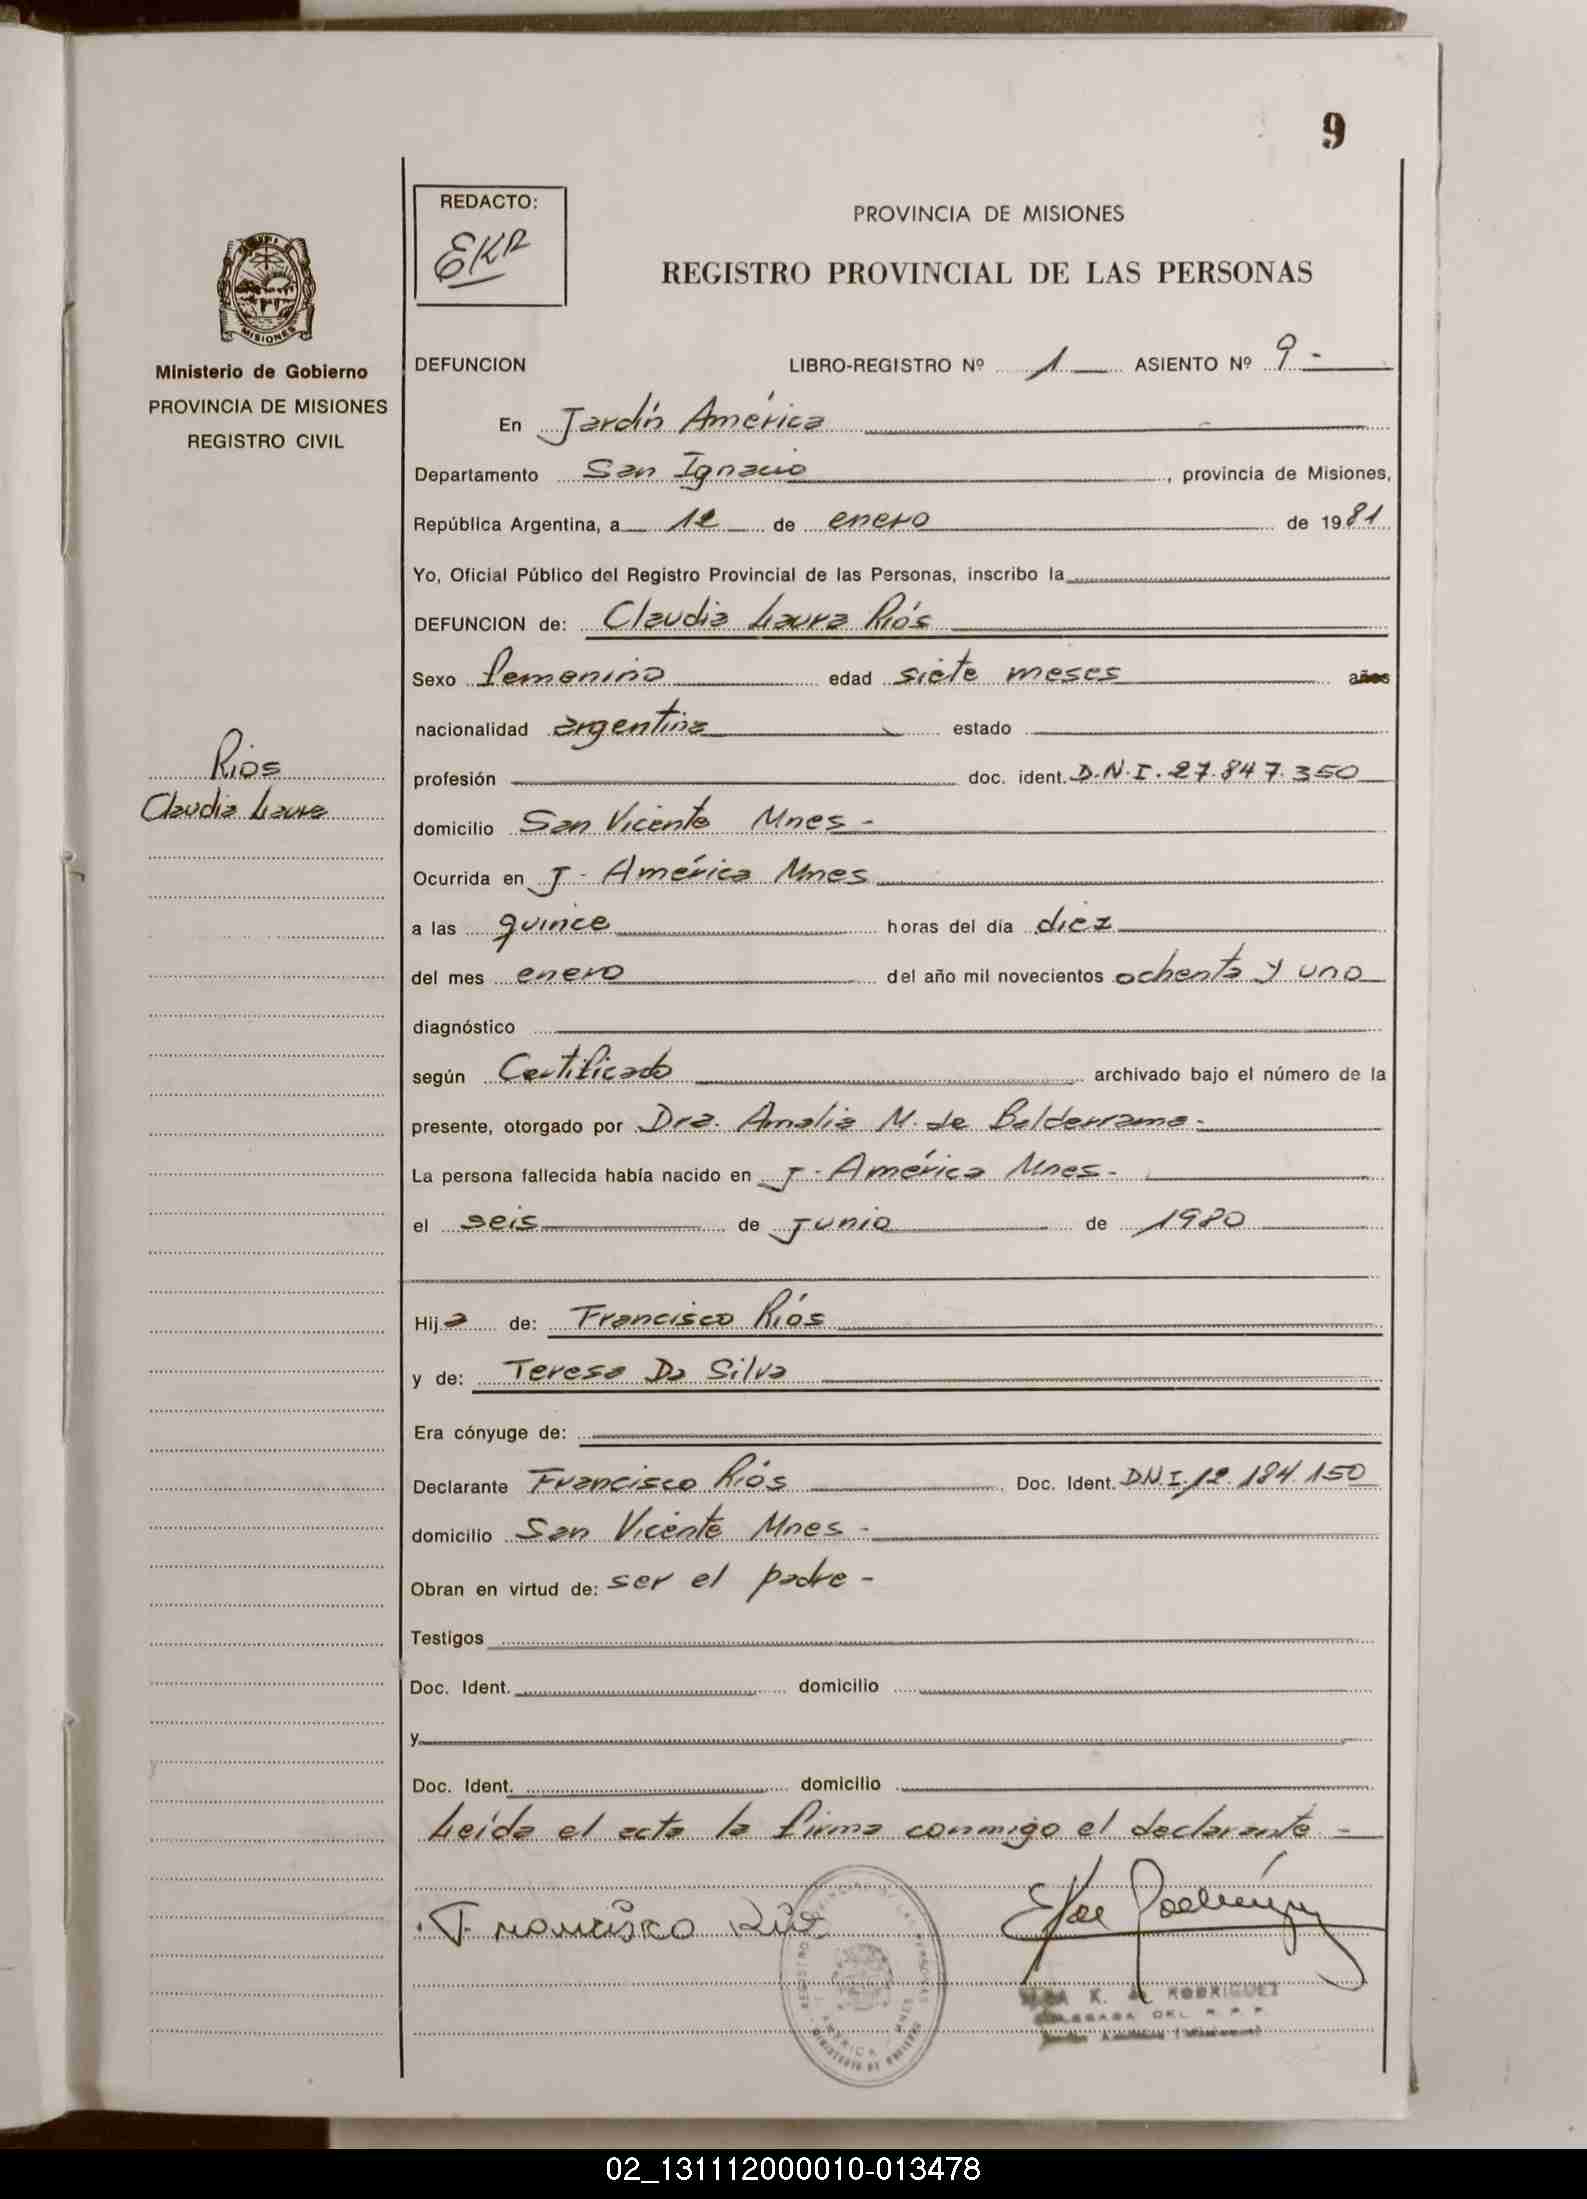 9
REDACTO:
EKR
PROVINCIA DE MISIONES
REGISTRO PROVINCIAL DE LAS PERSONAS
MISIONES
Ministerio de Gobierno
PROVINCIA DE MISIONES
REGISTRO CIVIL
DEFUNCION LIBRO-REGISTRO Nº 1 ASIENTO Nº 9-
En Jardín América
Departamento San Ignacio, provincia de Misiones,
República Argentina, a 12 de enero de 1981
Yo, Oficial Público del Registro Provincial de las Personas, inscribo la
DEFUNCION de: Claudia Laura Riós
Sexo femenino edad siete meses años
nacionalidad argentina estado
Rios
Claudia Laura
profesión doc. ident. D.N.I. 27.847.350
domicilio San Vicente Mnes-
Ocurrida en J- América Mnes
a las quince horas del día diez
del mes enero del año mil novecientos ochenta y uno
diagnóstico
según Certificado archivado bajo el número de la
presente, otorgado por Dra. Amalia M. de Balderrama-
La persona fallecida había nacido en J- América Mnes-
el seis de junio de 1980
Hija de: Francisco Riós
y de: Teresa Da Silva
Era cónyuge de:
Declarante Francisco Riós Doc. Ident. D.N.I. 12.184.150
domicilio San Vicente Mnes-
Obran en virtud de: ser el padre-
Testigos
Doc. Ident. domicilio
y
Doc. Ident. domicilio
Leída el acta la firma conmigo el declarante-
Francisco Rios
K. de RODRIGUEZ
DEL R. P. P.
02_131112000010-013478